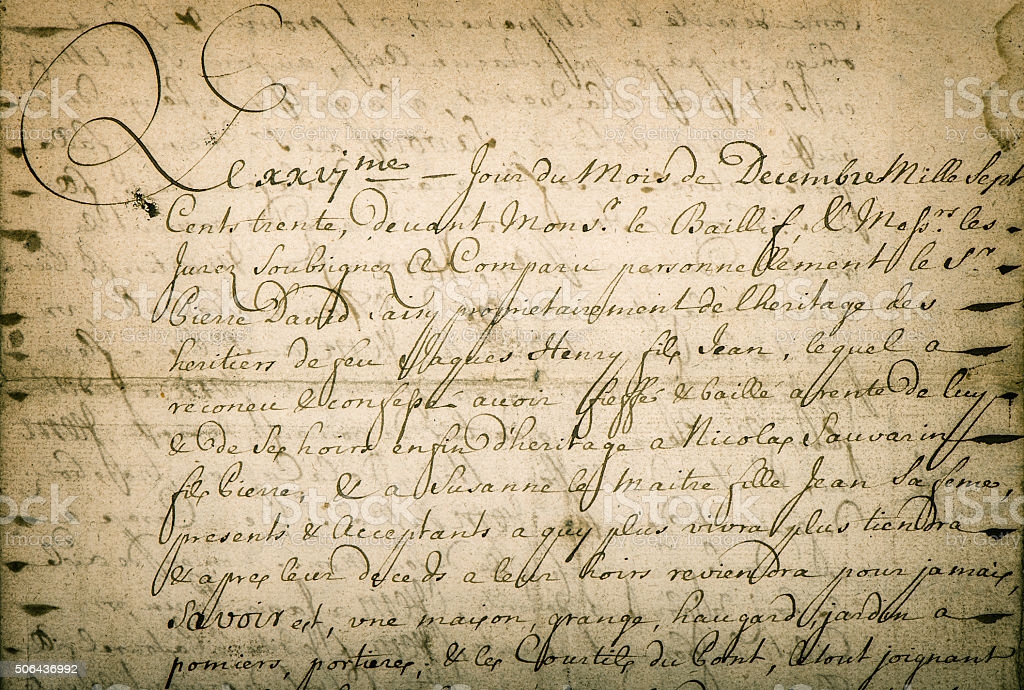 Le xxvjme — Jour du Mois de Decembre Mille Sept
Cents trente, devant Monsr. le Baillif, & Messrs. les
Jurez Soubsignez A Comparu personnellement le Sr.
Pierre David proprietairement de lheritage des
heritiers de feu Jaques Henry fils Jean, lequel a
reconeu & confessé avoir fieffé & baillé a rente de luy
& de Ses hoirs enfin d'heritage a Nicolas Sauvarin
fils Pierre, & a Susanne le Maitre fille Jean Sa feme,
presents & Acceptants a quy plus vivra plus tiendra
& apres leur deceds a leur hoirs reviendra pour jamais,
Savoir est, vne maison, grange, haugard, jardin a
pomiers, portieres, & les Courtils du Pont, le tout joignant
iStock
by Getty Images
506436992